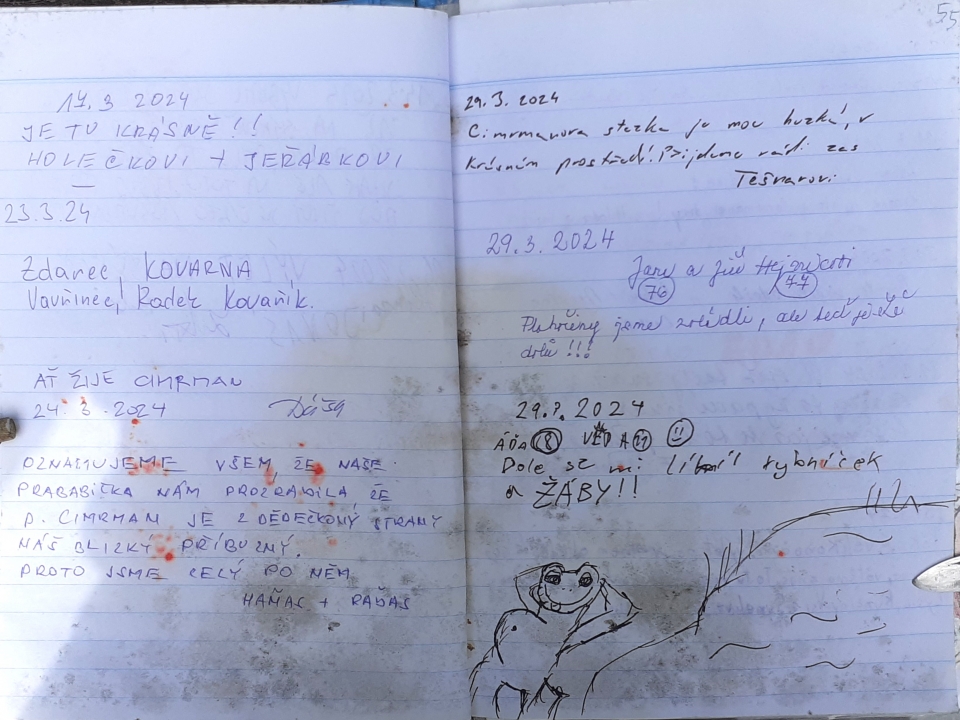 17.3 2024
JE TU KRÁSNĚ!!
HOLEČKOVI + JEŘÁBKOVI
23.3.24
Zdanec, KOVARNA
Vavřinec, Radek Kovařík.
AŤ ŽIJE CIMRMAN
24.3.2024 Dáša
OZNAMUJEME VŠEM, ŽE NAŠE
PRABABIČKA NÁM PROZRADILA, ŽE
P. CIMRMAN JE Z DĚDEČKOVÝ STRANY
NÁŠ BLIZKÝ PŘÍBUZNÝ.
PROTO JSME CELÝ PO NĚM
HAŇAS + RAĎAS
55
29.3.2024
Cimrmanova stezka je moc hezká, v
krásném prostředí. Přijdeme rádi zas
Tešnarovi
29.3.2024
Jana a Jiří
76 77
Plahočiny jsme zvládli, ale teď ješče
dolů !!!
29.?.2024
ÁĎA 8 VĚĎA
Dole se mi líbil rybníček
a ŽÁBY!!